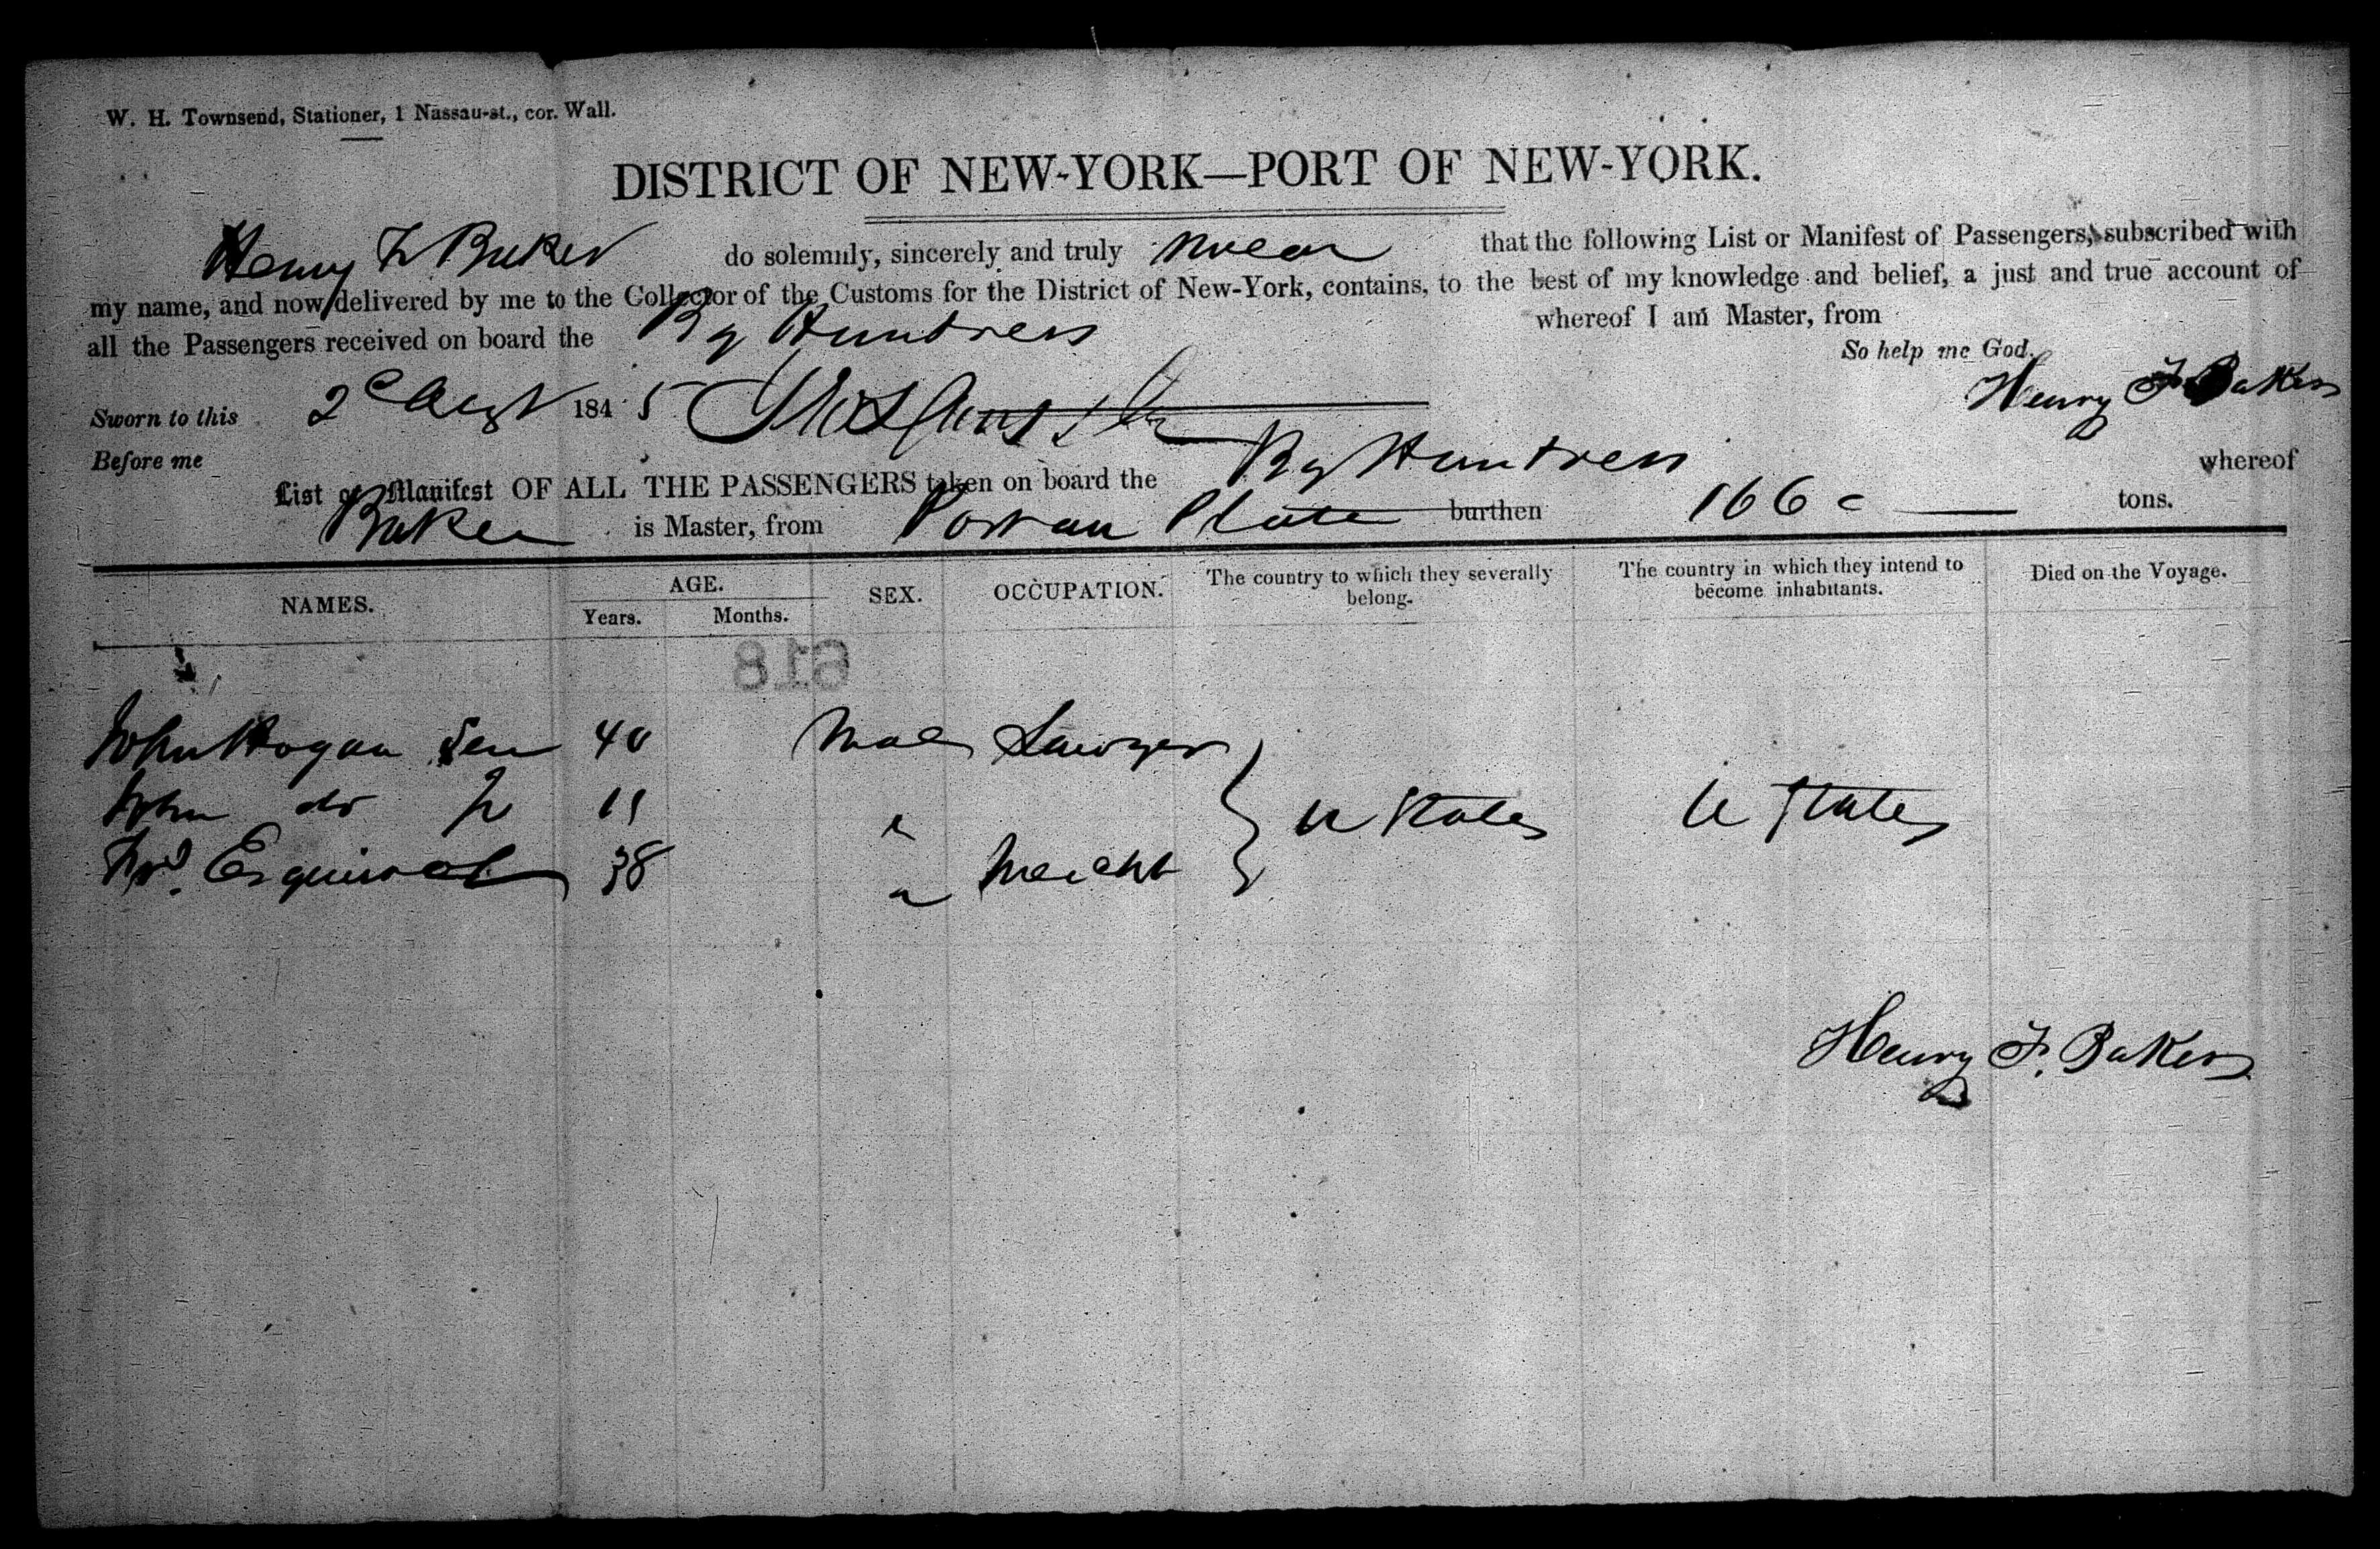 W. H. Townsend, Stationer, 1 Nassau-st., cor. Wall.
DISTRICT OF NEW-YORK—PORT OF NEW-YORK.
Henry F Baker do solemnly, sincerely and truly swear that the following List or Manifest of Passengers, subscribed with
my name, and now delivered by me to the Collector of the Customs for the District of New-York, contains, to the best of my knowledge and belief, a just and true account of
all the Passengers received on board the Bg Huntress whereof I am Master, from
So help me God.
Sworn to this 2d Augt 1845 Henry F Baker
Before me
List or Manifest OF ALL THE PASSENGERS taken on board the Bg Huntress whereof
Baker is Master, from Port au Plate burthen 166 tons.
NAMES. AGE. SEX. OCCUPATION. The country to which they severally belong. The country in which they intend to become inhabitants. Died on the Voyage.
Years. Months.
618
John Hogan Sen 40 Male Lawyer
John do Jr 11 " U States U States
Esquival 38 " Mercht
Henry F. Baker